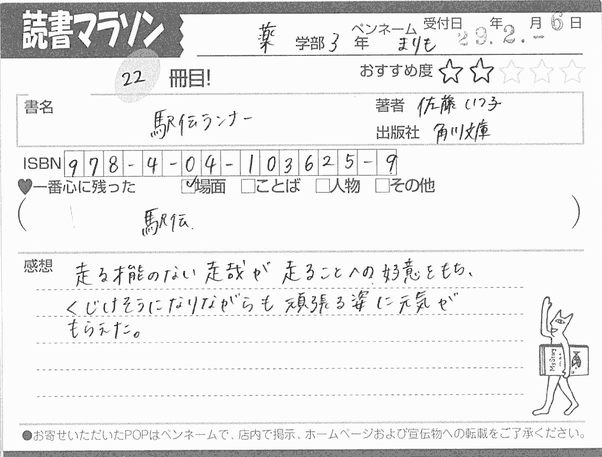 読書マラソン
薬 学部 3 年 ペンネーム まりも 受付日 年 月 日
29.2.-6
22 冊目!
おすすめ度 ☆☆☆☆☆
書名 駅伝ランナー
著者 佐藤いつ子
出版社 角川文庫
ISBN 978-4-04-103625-9
♥一番心に残った ☑場面 □ことば □人物 □その他
( 駅伝 )
感想 走る才能のない走哉が走ることへの好意をもち、
くじけそうになりながらも頑張る姿に元気が
もらえた。
●お寄せいただいたPOPはペンネームで、店内で掲示、ホームページおよび宣伝物への転載をご了承ください。